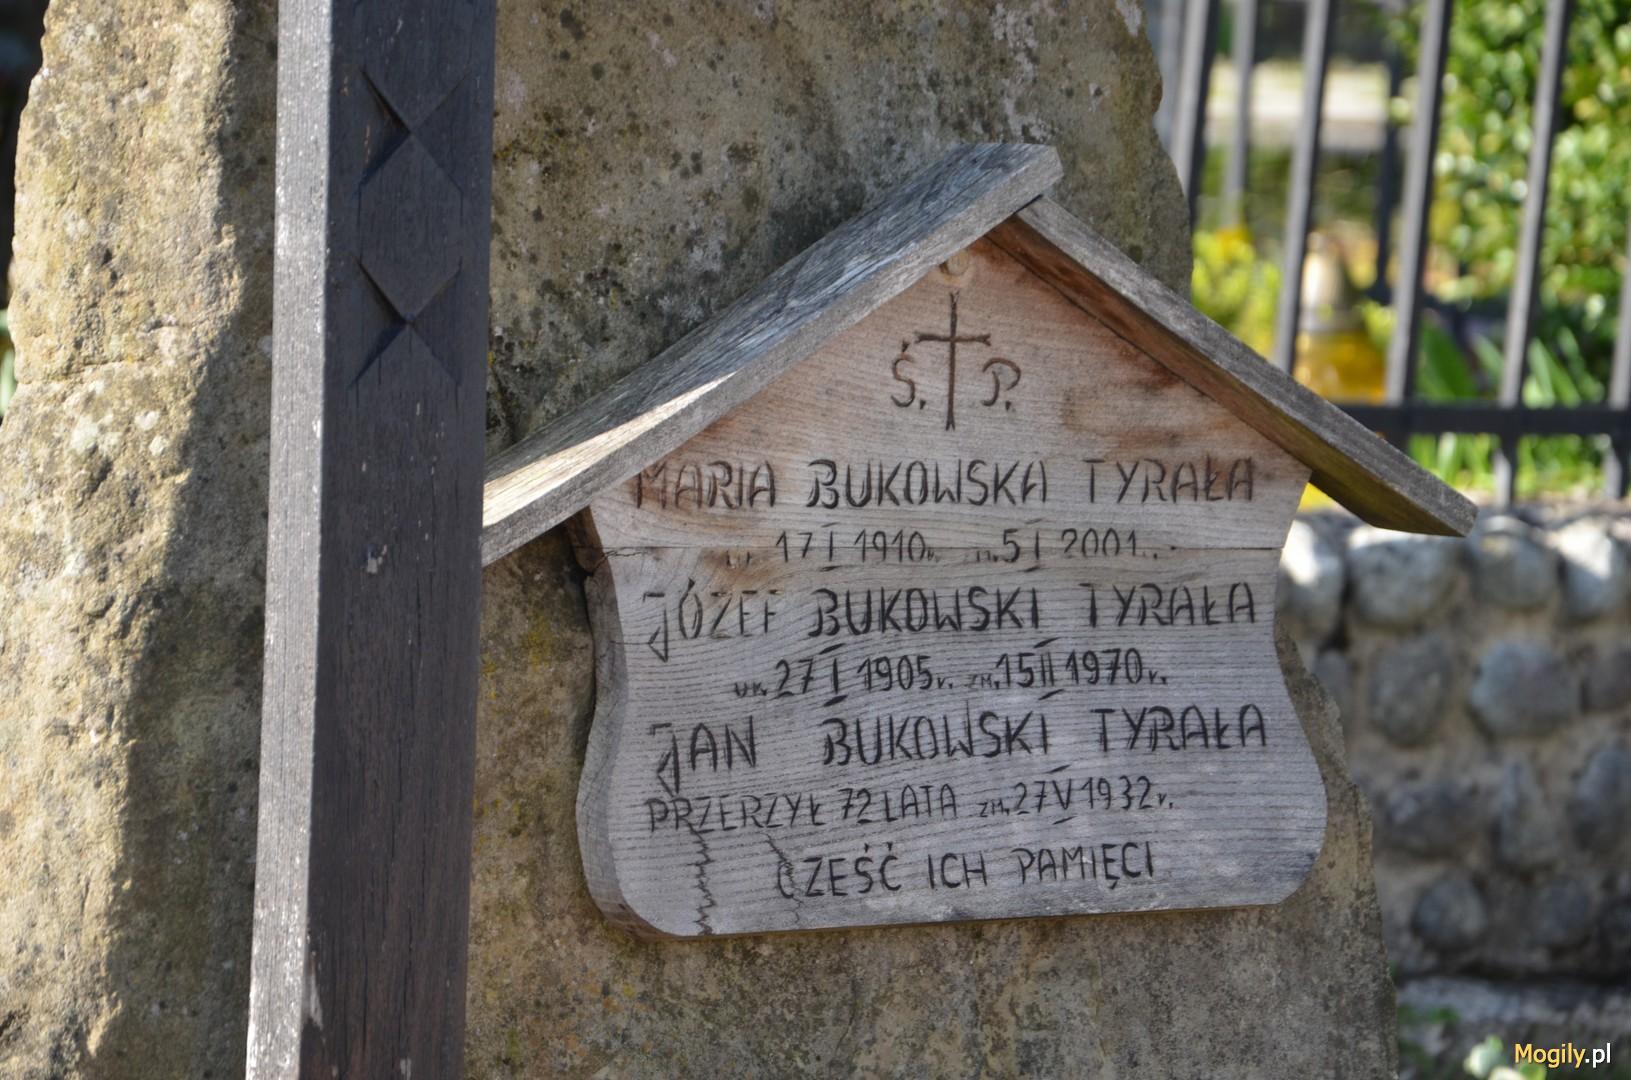 Ś. P.
MARIA BUKOWSKA TYRAŁA
ur. 17 I 1910r. zm. 5 I 2001r.
JÓZEF BUKOWSKI TYRAŁA
ur. 27 I 1905r. zm. 15 II 1970r.
JAN BUKOWSKI TYRAŁA
PRZERZYŁ 72 LATA zm. 27 V 1932r.
CZEŚĆ ICH PAMIĘCI
Mogily.pl